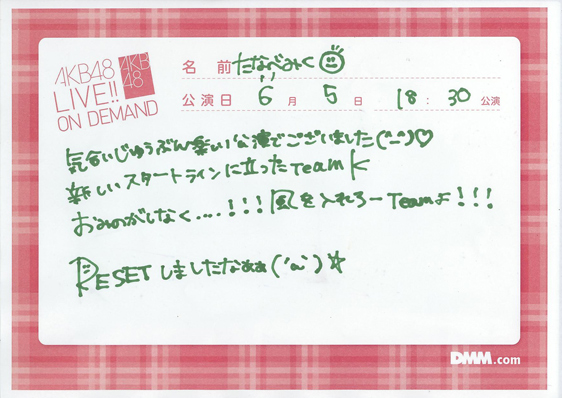 AKB48
LIVE!!
ON DEMAND
AKB
48
名 前 たなべみく
公演日 6 月 5 日 18 : 30 公演
気合いじゅうぶん 公演でございました(^-^)♡
新しいスタートラインに立ったTeam K
おみのがしなく....!!! 風を入れろーTeamよ!!!
RESETしましたなぁぁ('ω')☆
DMM.com